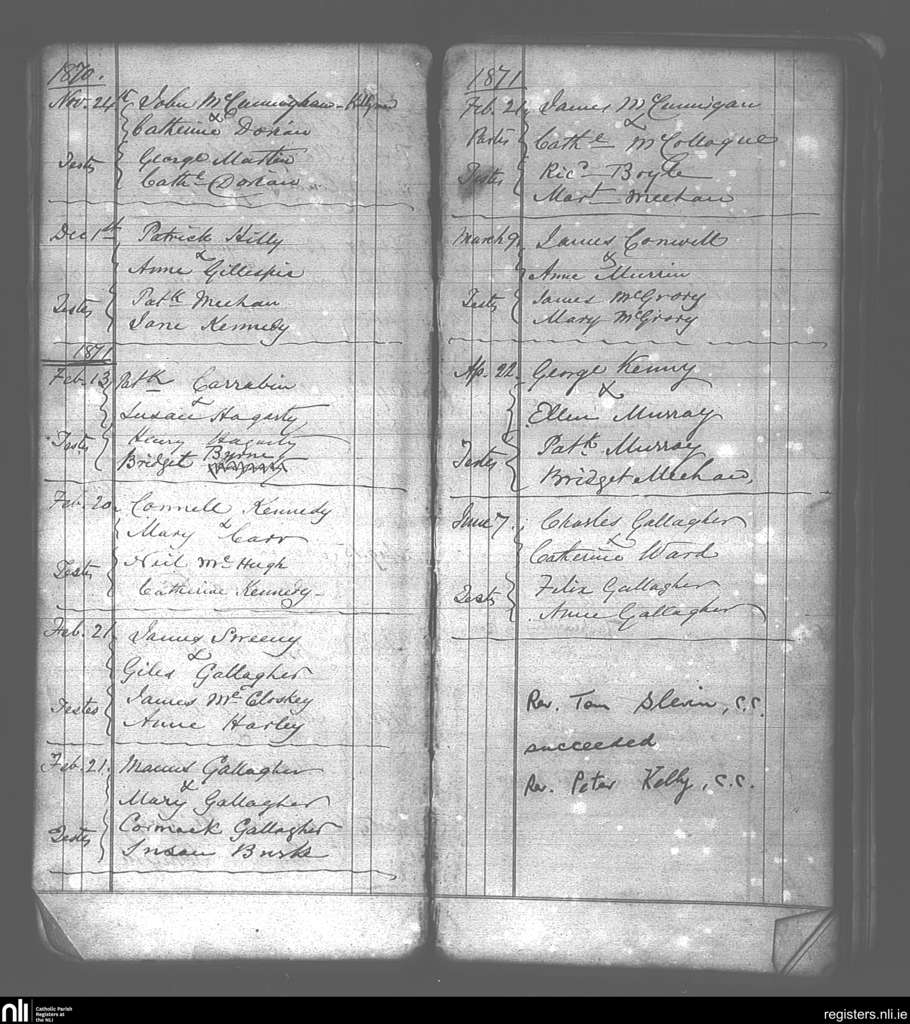 1870.
Nov. 24th John McCunningham - 
&
Catherine Dorian
Testes George Martin
Cathe Dorian
Dec 1st Patrick Kelly
&
Anne Gillespie
Testes Patk Meehan
Jane Kennedy
1871
Feb. 13 Patk Carrabin
&
Susan Hagarty
Testes Henry Hagarty
Bridget Byrne
Feb. 20 Connell Kennedy
&
Mary Carr
Testes Neil McHugh
Catherine Kennedy
Feb. 21 James Sweeny
&
Giles Gallagher
James McCloskey
Testes Anne Harley
Feb. 21. Manus Gallagher
&
Mary Gallagher
Cormack Gallagher
Testes Susan Burke
1871
Feb. 21 James McCunnigan
&
Parties Cathe McCollogue
Testes Ricd Boyle
Mart Meehan
March 9 James Conwell
&
Anne Murrin
Testes James McGrory
Mary McGrory
Ap. 22. George Kenny
&
Ellen Murray
Testes Patk Murray
Bridget Meehan
June 7. Charles Gallagher
&
Catherine Ward
Testes Felix Gallagher
Anne Gallagher
Rev. Tom Slevin, c.c.
succeeded
Rev. Peter Kelly, c.c.
nli Catholic Parish
Registers at
the NLI
registers.nli.ie